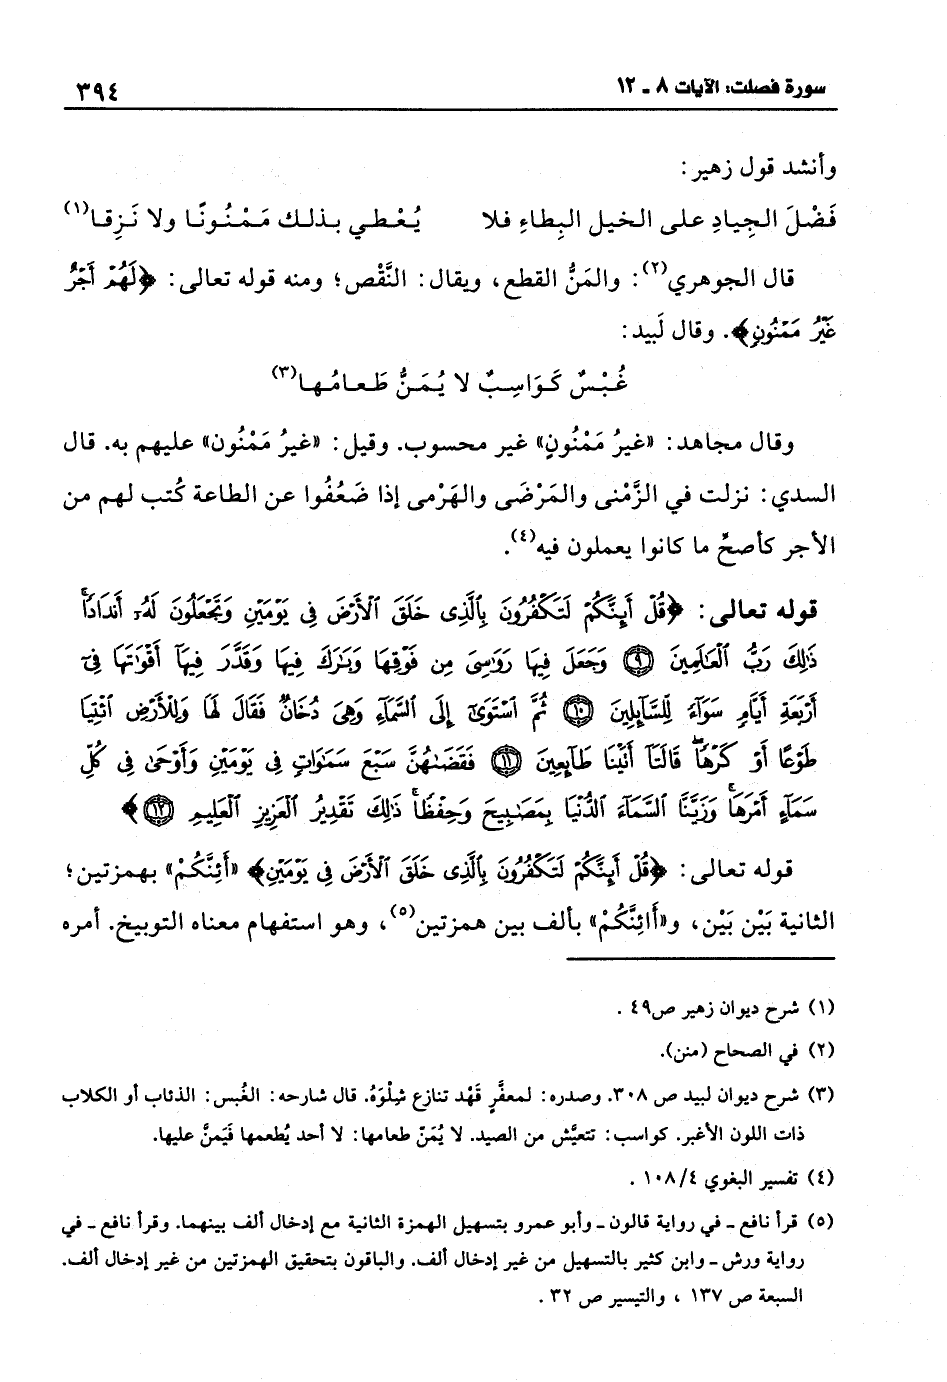 سورة فصلت: الآيات ٨ ـ ١٢ ٣٩٤
وأنشد قول زهير:
فَضْلَ الجِيادِ على الخيل البِطاءِ فلا يُعْطي بذلك مَمْنُونًا ولا نَزِقا(١)
قال الجوهري(٢): والمَنُّ القطع، ويقال: النَّقْص؛ ومنه قوله تعالى: ﴿لَهُمْ أَجْرٌ
غَيْرُ مَمْنُونٍ﴾. وقال لَبيد:
غُبْسٌ كَوَاسِبٌ لا يُمَنُّ طَعامُها(٣)
وقال مجاهد: «غيرُ مَمْنُونٍ» غير محسوب. وقيل: «غيرُ مَمْنُون» عليهم به. قال
السدي: نزلت في الزَّمْنى والمَرْضَى والهَرْمى إذا ضَعُفُوا عن الطاعة كُتب لهم من
الأجر كأصحِّ ما كانوا يعملون فيه(٤).
قوله تعالى: ﴿قُلْ أَئِنَّكُمْ لَتَكْفُرُونَ بِٱلَّذِى خَلَقَ ٱلْأَرْضَ فِى يَوْمَيْنِ وَتَجْعَلُونَ لَهُۥٓ أَندَادًاۚ
ذَٰلِكَ رَبُّ ٱلْعَٰلَمِينَ ٩ وَجَعَلَ فِيهَا رَوَٰسِىَ مِن فَوْقِهَا وَبَٰرَكَ فِيهَا وَقَدَّرَ فِيهَآ أَقْوَٰتَهَا فِىٓ
أَرْبَعَةِ أَيَّامٍ سَوَآءً لِّلسَّآئِلِينَ ١٠ ثُمَّ ٱسْتَوَىٰٓ إِلَى ٱلسَّمَآءِ وَهِىَ دُخَانٌ فَقَالَ لَهَا وَلِلْأَرْضِ ٱئْتِيَا
طَوْعًا أَوْ كَرْهًاۖ قَالَتَآ أَتَيْنَا طَآئِعِينَ ١١ فَقَضَىٰهُنَّ سَبْعَ سَمَٰوَاتٍ فِى يَوْمَيْنِ وَأَوْحَىٰ فِى كُلِّ
سَمَآءٍ أَمْرَهَاۚ وَزَيَّنَّا ٱلسَّمَآءَ ٱلدُّنْيَا بِمَصَٰبِيحَ وَحِفْظًاۚ ذَٰلِكَ تَقْدِيرُ ٱلْعَزِيزِ ٱلْعَلِيمِ ١٢﴾
قوله تعالى: ﴿قُلْ أَئِنَّكُمْ لَتَكْفُرُونَ بِٱلَّذِى خَلَقَ ٱلْأَرْضَ فِى يَوْمَيْنِ﴾ «أَئِنَّكُمْ» بهمزتين؛
الثانية بَيْن بَيْن، و«أَائِنَّكُمْ» بألف بين همزتين(٥)، وهو استفهام معناه التوبيخ. أمره
(١) شرح ديوان زهير ص٤٩ .
(٢) في الصحاح (منن).
(٣) شرح ديوان لبيد ص ٣٠٨. وصدره: لمعفَّرٍ قَهْد تنازع شِلْوَهُ. قال شارحه: الغُبس: الذئاب أو الكلاب
ذات اللون الأغبر. كواسب: تتعيَّش من الصيد. لا يُمَنّ طعامها: لا أحد يُطعمها فيَمنَّ عليها.
(٤) تفسير البغوي ٤/ ١٠٨ .
(٥) قرأ نافع ـ في رواية قالون ـ وأبو عمرو بتسهيل الهمزة الثانية مع إدخال ألف بينهما. وقرأ نافع ـ في
رواية ورش ـ وابن كثير بالتسهيل من غير إدخال ألف. والباقون بتحقيق الهمزتين من غير إدخال ألف.
السبعة ص ١٣٧ ، والتيسير ص ٣٢ .